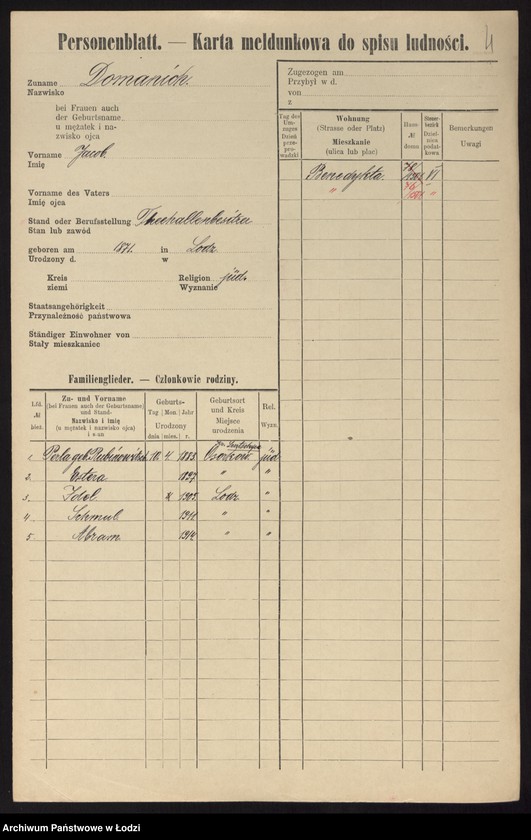 Personenblatt. — Karta meldunkowa do spisu ludności.
4
Zuname Domanich.
Nazwisko
bei Frauen auch
der Geburtsname
u mężatek i na-
zwisko ojca
Vorname Jacob.
Imię
Vorname des Vaters
Imię ojca
Stand oder Berufsstellung Theehallenbesitzer
Stan lub zawód
geboren am 1871. in Lodz
Urodzony d. w
Kreis Religion jüd.
ziemi Wyznanie
Staatsangehörigkeit
Przynależność państwowa
Ständiger Einwohner von
Stały mieszkaniec
Zugezogen am
Przybył w d.
von
z
Tag des Um-zuges Dzień prze-pro-wadzki
Wohnung
(Strasse oder Platz)
Mieszkanie
(ulica lub plac)
Haus- № domu
Steuer-bezirk Dziel-nica podat-kowa
Bemerkungen
Uwagi
Benedykta. VI
" "
Familienglieder. — Członkowie rodziny.
Lfd. № bież.
Zu- und Vorname
(bei Frauen auch der Geburtsname
und Stand-
Nazwisko i imię
(u mężatek i nazwisko ojca)
i stan
Geburts-
Tag Mon. Jahr
Urodzony
dnia mies. r.
Geburtsort
und Kreis
Miejsce
urodzenia
Rel.
Wyzn.
1. Perla geb. Rubinowitsch 10. 4 1883 jüd.
2. Estera 1897 " "
3. Idel 1902 Lodz "
4. Schmul 1910 " "
5. Abram. 1912 " "
Archiwum Państwowe w Łodzi